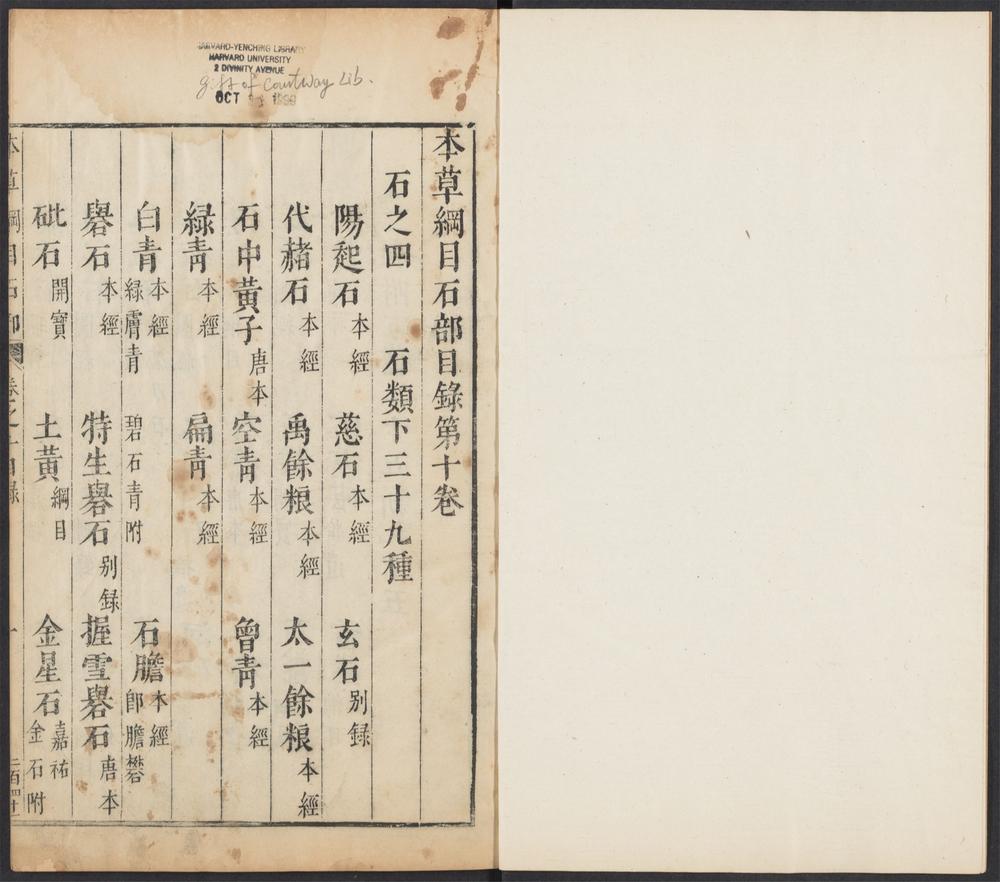 HARVARD-YENCHING LIBRARY
HARVARD UNIVERSITY
2 DIVINITY AVENUE
gift of Countway Lib.
OCT
本草綱目石部目錄第十卷
石之四 石類下三十九種
陽起石 本經 慈石 本經 玄石 別錄
代赭石 本經 禹餘粮 本經 太一餘粮 本經
石中黃子 唐本 空青 本經 曾青 本經
綠青 本經 扁青 本經
白青 本經 綠膚青 碧石青附 石膽 本經 卽膽礬
礜石 本經 特生礜石 別錄 握雪礜石 唐本
砒石 開寶 土黃 綱目 金星石 嘉祐 金石附
本草綱目石部 卷之十目錄 一